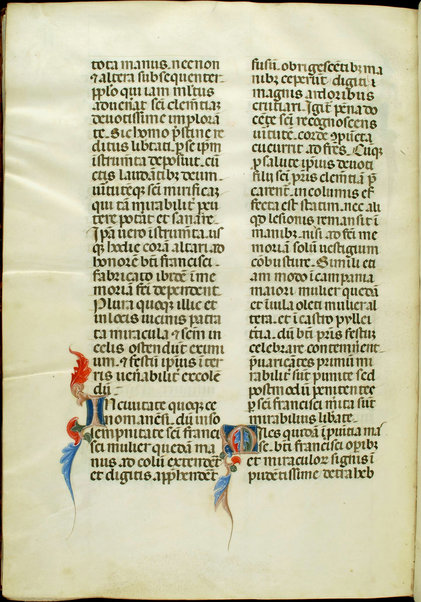 tota manus. nec non
& altera subsequenter
p̄ plo qui iam m̄ltus
aduenat sc̄i clem̄tiaʒ
deuotissime implora
te. Sic homo p̄stine re
ditus lib̄tati. p̄ se ip̄m
istrum̄ta deposuit. cū
ctis laudan̄tibʒ deum.
uirtutēqʒ sc̄i mirificaʒ
qui tā mirabilit̄ pcu
tere potat et sanare.
Ip̄a uero istrum̄ta. us
qʒ hodie corā altari ad
honorē bt̄i francisci
fabricato ibidē ī me
moriam sc̄i dependent.
Plura quoqʒ illic et
in locis uicinis patra
ta miracula & sc̄m in
celis ostendūt eximi
um. & festū ip̄ius ī ter
ris uen̄abilit̄ excolē
dū.
In ciuitate quoqʒ ce
nomanēsi. dū in so
lempnitate sc̄i franci
sci mulier quedā ma
nus ad colū extendēt
et digitis app̄hendēt
fusum. obrigescētibʒ ma
nibʒ ceperūt digiti ī
magnis ardoribus
cruciari. Igit̄ pena do
cēte sc̄i recognoscens
uirtutē. corde 9pūcta
cucurrit ad fr̄es. Cūqʒ
p̄ salute ip̄ius deuoti
filii sc̄i pr̄is clem̄tiā p̄
carent̄. incolumis ef
fecta est statim. nec ali
qd̄ lesionis remansit ī
manibʒ. nisi ad fc̄i me
moriā solū uestigium
cōbusture. Simili et
iam modo ī campania
maiori mulier quedā
et ī uilla oleti mulier al
tera. et ī castro pyllei
tertia. dū bt̄i pr̄is festūʒ
celebrare contēpnēnt
p̄uaricātes primū mi
rabilit̄ sūt punite sed
postmodū penitentes
p̄ sc̄i francisci m̄ita sūt
mirabilius lib̄ate.
Miles quidā ī p̄uitia ma
se. bt̄i francisci opibʒ
et miraculoʒ signis ī
pudētissime detraheb